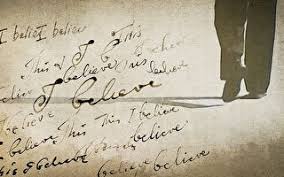 I believe I believe
This
This I believe
I believe This believe
I believe
I believe
believe This This I believe
This I believe believe
believe believe